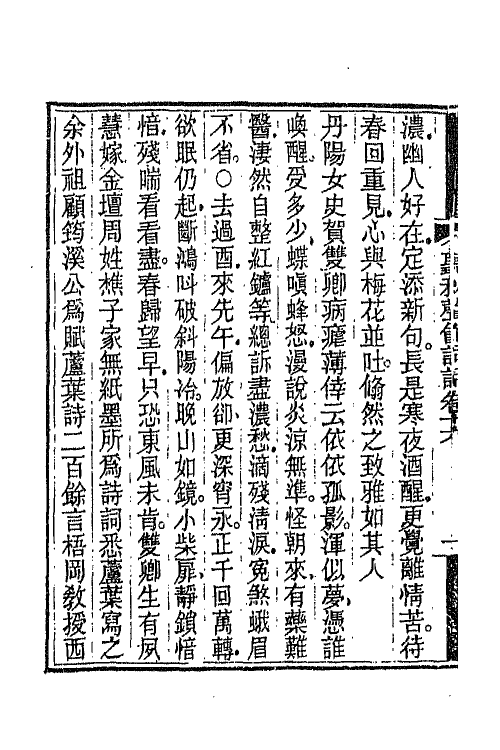 濃幽人好在定添新句長是寒夜酒醒更覺離情苦待
春回重見心與梅花並吐翛然之致雅如其人
丹陽女史賀雙卿病瘧薄倖云依依孤影渾似夢憑誰
喚醒受多少蝶嗔蜂怒漫說炎涼無準怪朝來有藥難
醫淒然自整紅鑪等總訴盡濃愁滴殘清淚冤煞蛾眉
不省○去過酉來先午偏放卻更深宵永正千回萬轉
欲眠仍起斷鴻叫破斜陽冶晚山如鏡小柴扉靜鎖愔
愔殘喘看看盡春歸望早只恐東風未肯雙卿生有夙
慧嫁金壇周姓樵子家無紙墨所為詩詞悉蘆葉寫之
余外祖顧筠溪公為賦蘆葉詩二百餘言梧岡教授西